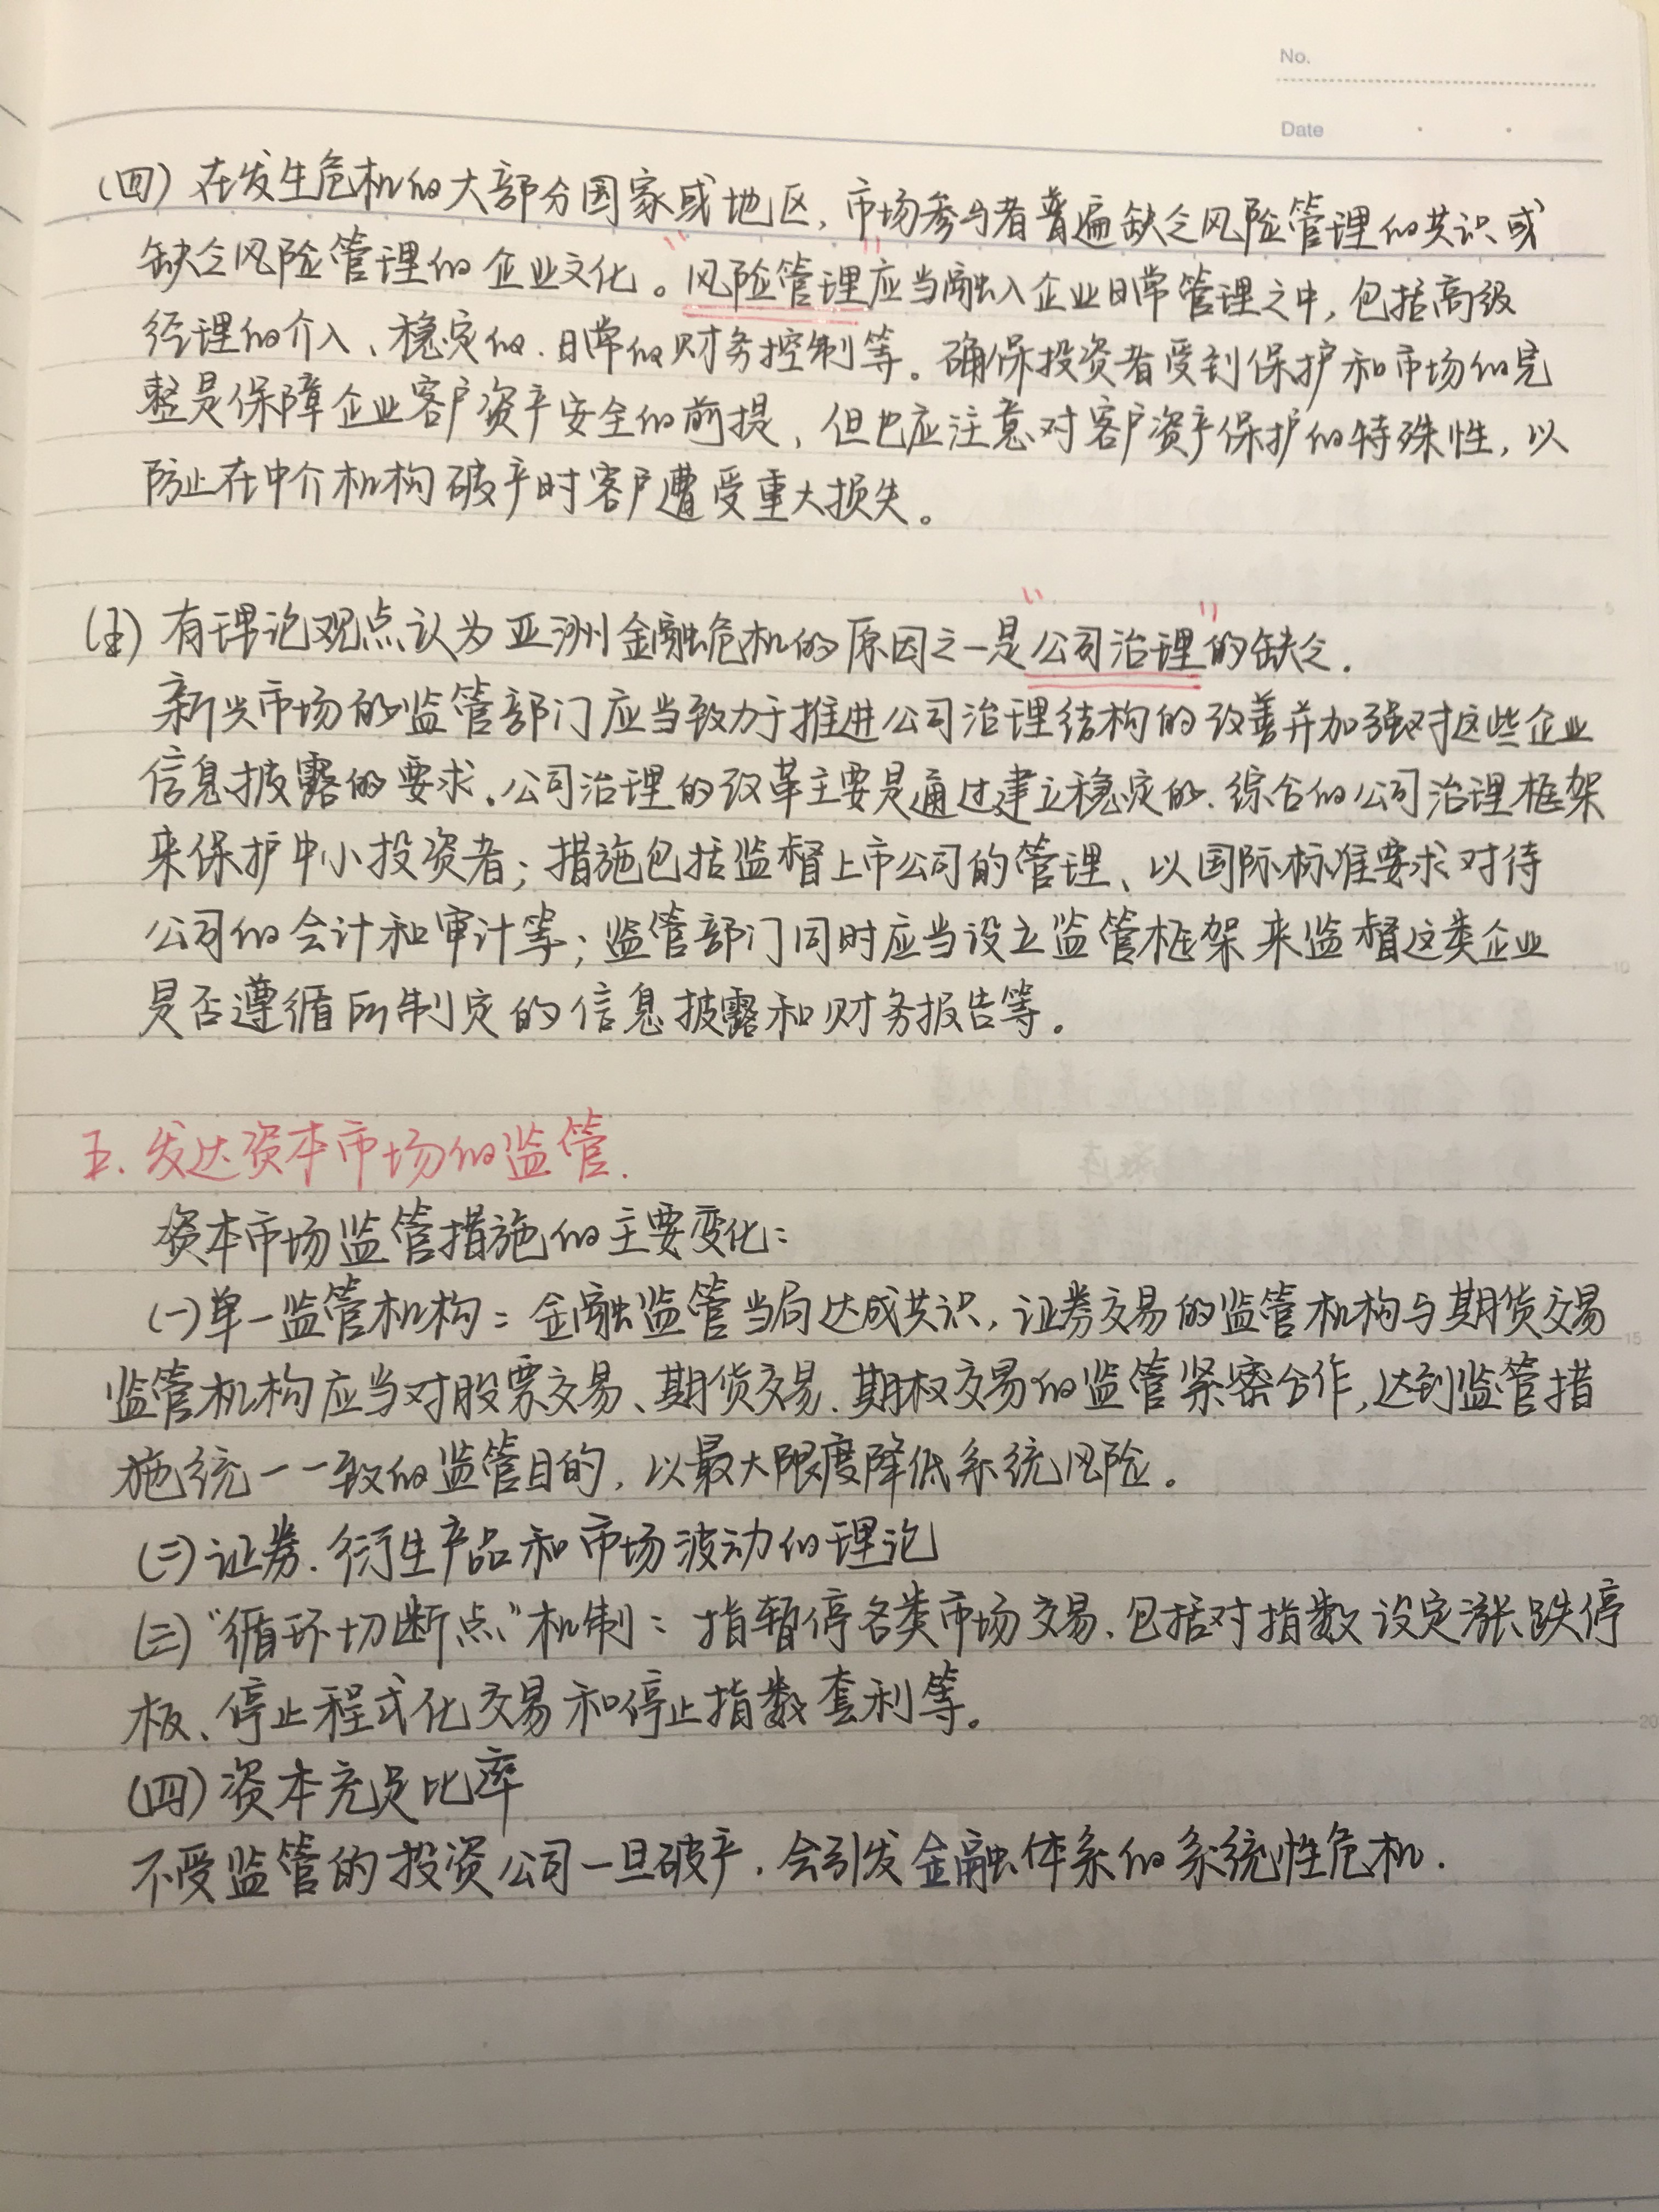 No.
Date
(四) 在发生危机的大部分国家或地区,市场参与者普遍缺乏风险管理的共识或
缺乏风险管理的企业文化。“风险管理”应当融入企业日常管理之中,包括高级
经理的介入、稳定的、日常的财务控制等。确保投资者受到保护和市场的完
整是保障企业客户资产安全的前提,但也应注意对客户资产保护的特殊性,以
防止在中介机构破产时客户遭受重大损失。
(五) 有理论观点认为亚洲金融危机的原因之一是“公司治理”的缺乏.
新兴市场的监管部门应当致力于推进公司治理结构的改善并加强对这些企业
信息披露的要求.公司治理的改革主要是通过建立稳定的、综合的公司治理框架
来保护中小投资者;措施包括监督上市公司的管理、以国际标准要求对待
公司的会计和审计等;监管部门同时应当设立监管框架来监督这类企业
是否遵循所制定的信息披露和财务报告等.
五.发达资本市场的监管.
资本市场监管措施的主要变化:
(一)单一监管机构:金融监管当局达成共识,证券交易的监管机构与期货交易
监管机构应当对股票交易、期货交易、期权交易的监管紧密合作,达到监管措
施统一一致的监管目的,以最大限度降低系统风险。
(二)证券、衍生产品和市场波动的理论
(三)“循环切断点”机制:指暂停各类市场交易、包括对指数设定涨跌停
板、停止程式化交易和停止指数套利等。
(四)资本充足比率
不受监管的投资公司一旦破产,会引发金融体系的系统性危机.
5
10
15
20